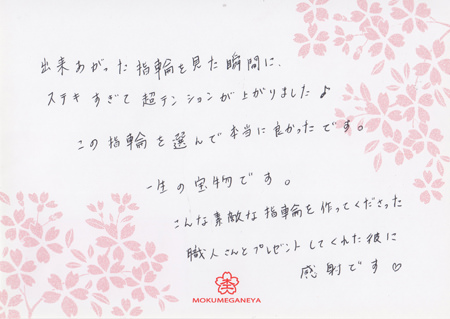 出来あがった指輪を見た瞬間に、
ステキすぎて超テンションが上がりました♪
この指輪を選んで本当に良かったです。
一生の宝物です。
こんな素敵な指輪を作ってくださった
職人さんとプレゼントしてくれた彼に
感射です♡
杢
MOKUMEGANEYA